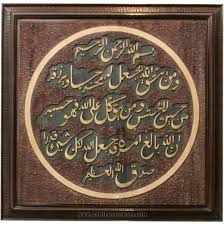 بسم الله الرحمن الرحيم
ومن يتق الله يجعل له مخرجا ويرزقه
من حيث لا يحتسب ومن يتوكل على الله فهو حسبه
ان الله بالغ امره قد جعل الله لكل شيئ قدرا
صدق الله العظيم